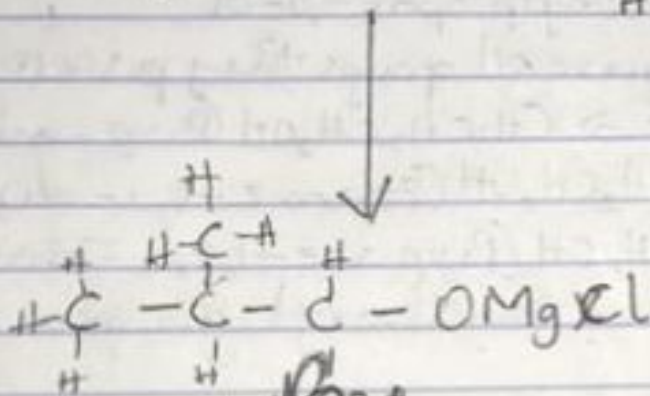 H
H
H-C-H
H H
H-C - C - C - OMgCl
H H